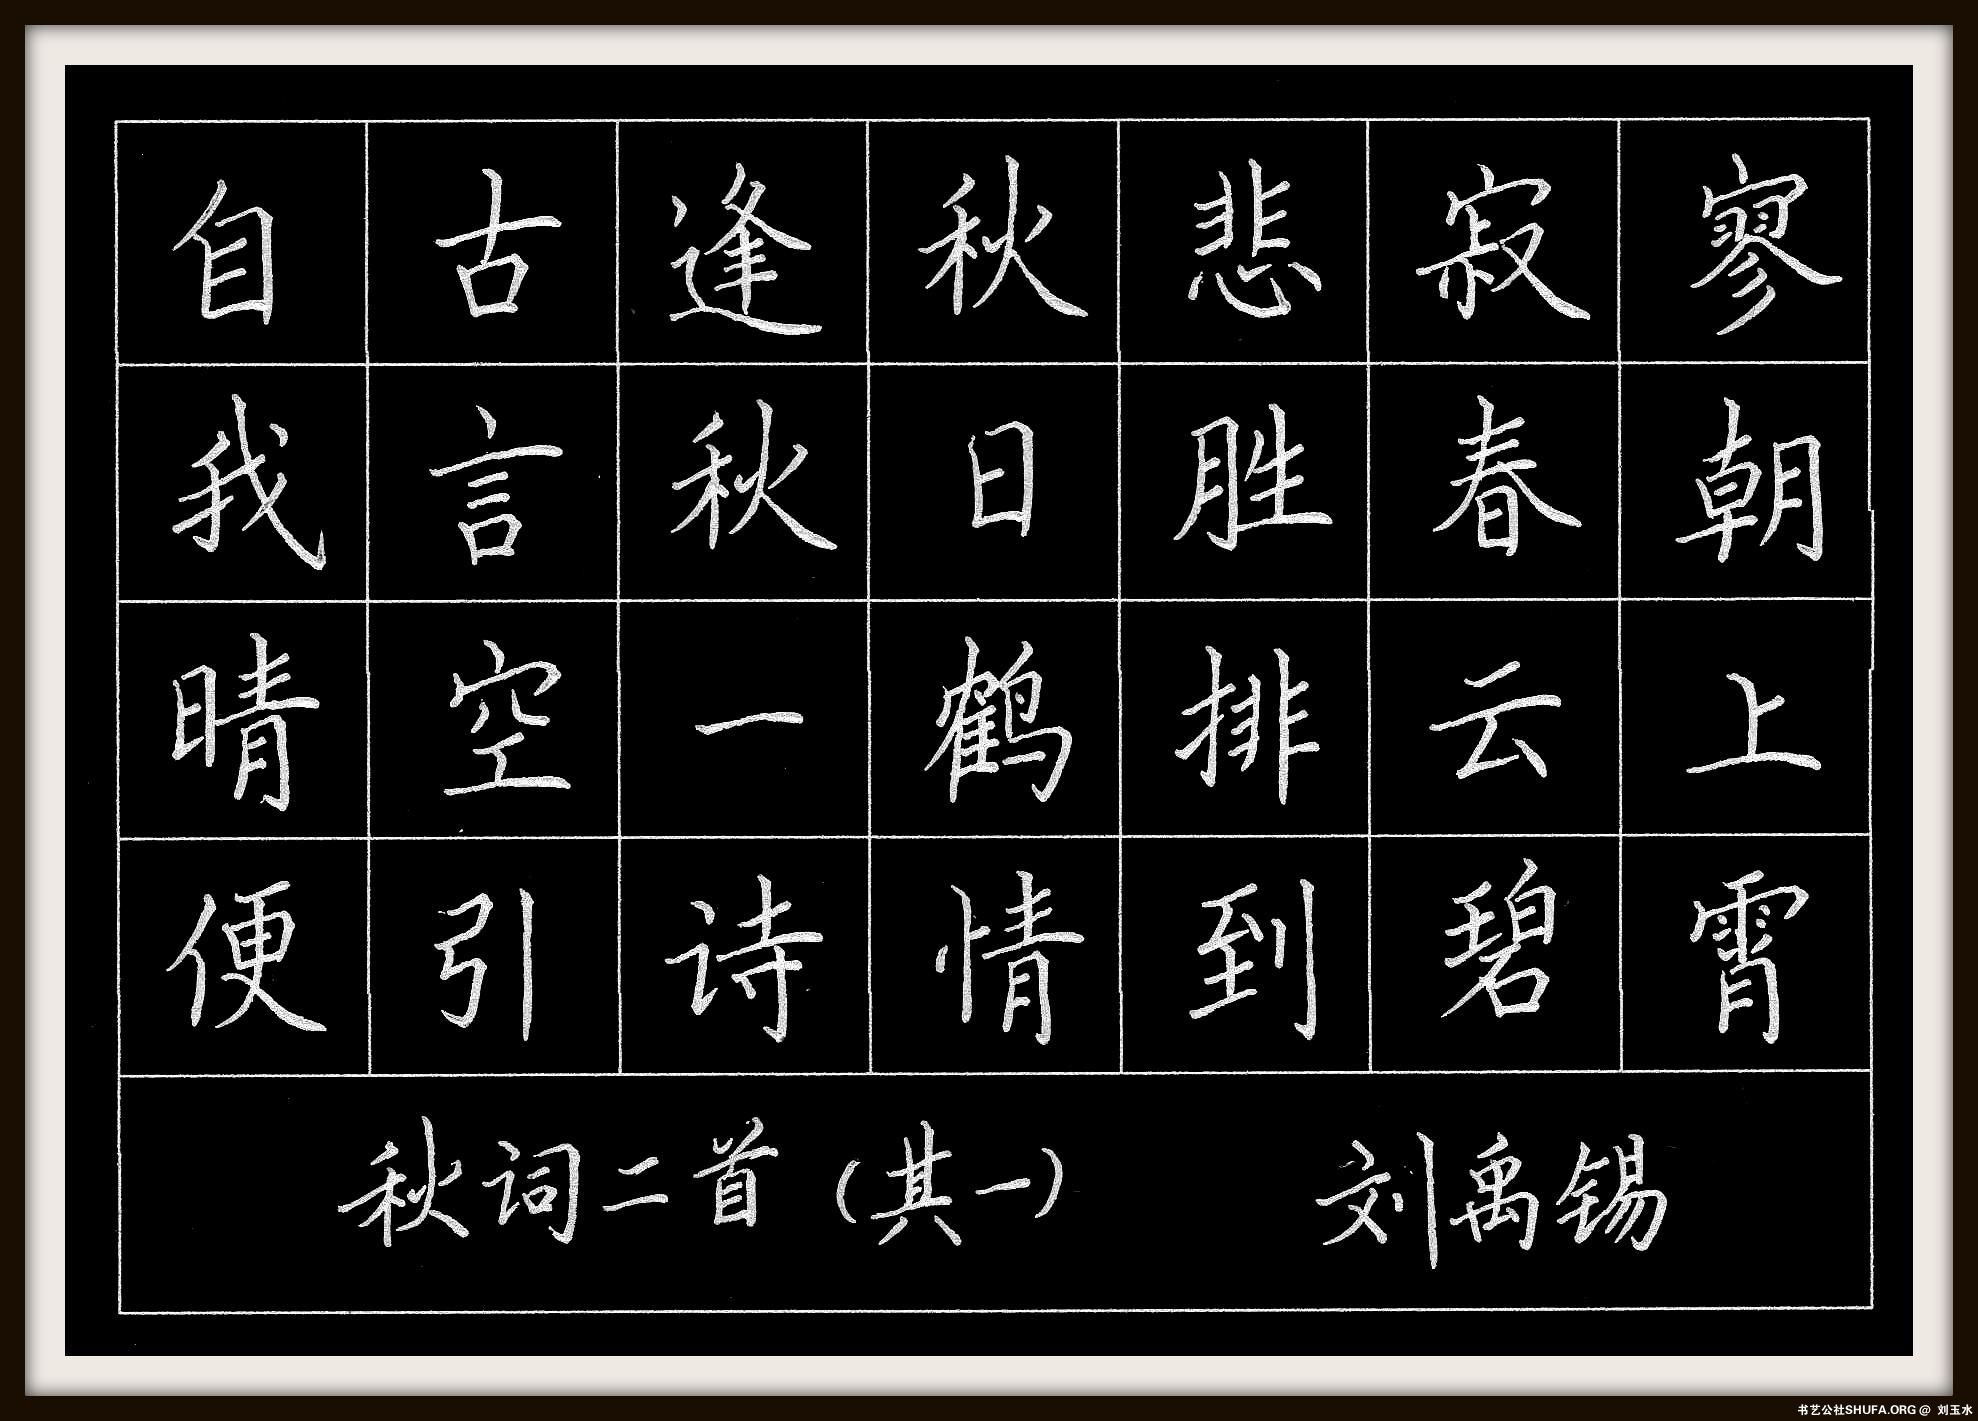 自古逢秋悲寂寥
我言秋日胜春朝
晴空一鹤排云上
便引诗情到碧霄
秋词二首（其一） 刘禹锡
书艺公社SHUFA.ORG@ 刘玉水